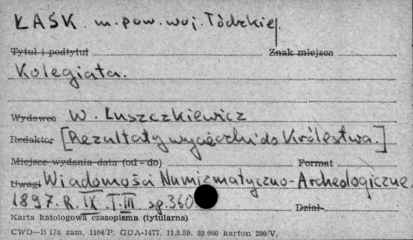 ŁAŚK. m. pow. woj. Łódzkiej.
Tytuł i podtytuł Znak miejsca
Kolegiata.
Wydawca W. Łuszczkiewicz
Redaktor [Rezultaty wycieczki do Królestwa.]
Miejsce wydania data (od - do) Format
Uwagi Wiadomości Numizmatyczno-Archeologiczne.
1897. R. IX T. III sp. 360 Dział
Karta katalogowa czasopisma (tytularna)
CWD—B 175 zam. 1104/P. GDA-1477. 11.5.59. 80 000 karton 200/V.